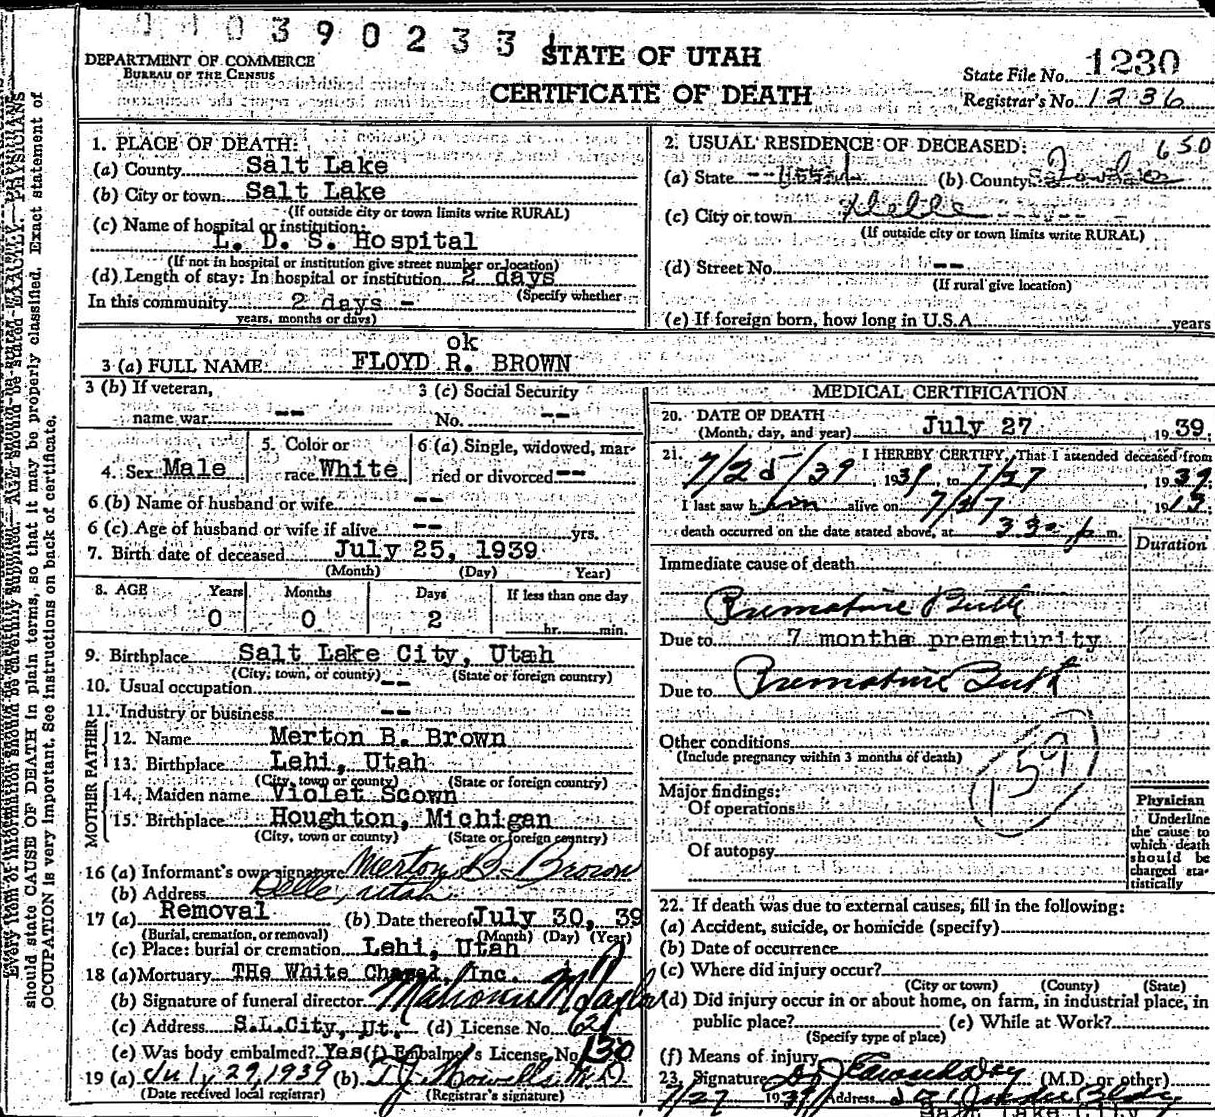 0390233
DEPARTMENT OF COMMERCE
BUREAU OF THE CENSUS
STATE OF UTAH
CERTIFICATE OF DEATH
State File No. 1230
Registrar's No. 1236
should state CAUSE OF DEATH in plain terms, so that it may be properly classified. Exact statement of
OCCUPATION is very important. See instructions on back of certificate.
1. PLACE OF DEATH:
(a) County Salt Lake
(b) City or town Salt Lake
(If outside city or town limits write RURAL)
(c) Name of hospital or institution:
L. D. S. Hospital
(If not in hospital or institution give street number or location)
(d) Length of stay: In hospital or institution 2 days
(Specify whether
In this community 2 days -
years, months or days)
2. USUAL RESIDENCE OF DECEASED: 650
(a) State -- (b) County
(c) City or town Delle
(If outside city or town limits write RURAL)
(d) Street No. --
(If rural give location)
(e) If foreign born, how long in U.S.A. years
ok
3 (a) FULL NAME: FLOYD R. BROWN
3 (b) If veteran,
name war --
3 (c) Social Security
No. --
4. Sex Male
5. Color or
race White
6 (a) Single, widowed, mar-
ried or divorced --
6 (b) Name of husband or wife --
6 (c) Age of husband or wife if alive -- yrs.
7. Birth date of deceased July 25, 1939
(Month) (Day) Year)
8. AGE Years Months Days If less than one day
0 0 2 hr. min.
9. Birthplace Salt Lake City, Utah
(City, town, or county) (State or foreign country)
10. Usual occupation --
11. Industry or business --
FATHER
12. Name Merton B. Brown
13. Birthplace Lehi, Utah
(City, town or county) (State or foreign country)
MOTHER
14. Maiden name Violet Scown
15. Birthplace Houghton, Michigan
(City, town or county) (State or foreign country)
16 (a) Informant's own signature Merton B. Brown
(b) Address Delle, Utah
17 (a) Removal (b) Date thereof July 30, 39
(Burial, cremation, or removal) (Month) (Day) (Year)
(c) Place: burial or cremation Lehi, Utah
18 (a) Mortuary THe White Chapel, Inc.
(b) Signature of funeral director
(c) Address S.L.City, Ut. (d) License No. 621
(e) Was body embalmed? Yes (f) Embalmer's License No. 130
19 (a) July 29, 1939 (b) T J Howells M.D.
(Date received local registrar) (Registrar's signature)
MEDICAL CERTIFICATION
20. DATE OF DEATH
(Month, day, and year) July 27, 1939.
21. I HEREBY CERTIFY, That I attended deceased from
7/25/39, 1939, to 7/27, 1939;
I last saw him alive on 7/27, 19
death occurred on the date stated above, at 330 p m.
Duration
Immediate cause of death
Premature Birth
Due to 7 months prematurity
Due to Premature Birth
Other conditions
(Include pregnancy within 3 months of death)
159
Major findings:
Of operations
Of autopsy
Physician
Underline
the cause to
which death
should be
charged sta-
tistically
22. If death was due to external causes, fill in the following:
(a) Accident, suicide, or homicide (specify)
(b) Date of occurrence
(c) Where did injury occur?
(City or town) (County) (State)
(d) Did injury occur in or about home, on farm, in industrial place, in
public place? (e) While at Work?
(Specify type of place)
(f) Means of injury
23. Signature (M.D. or other)
7/27 1939 Address